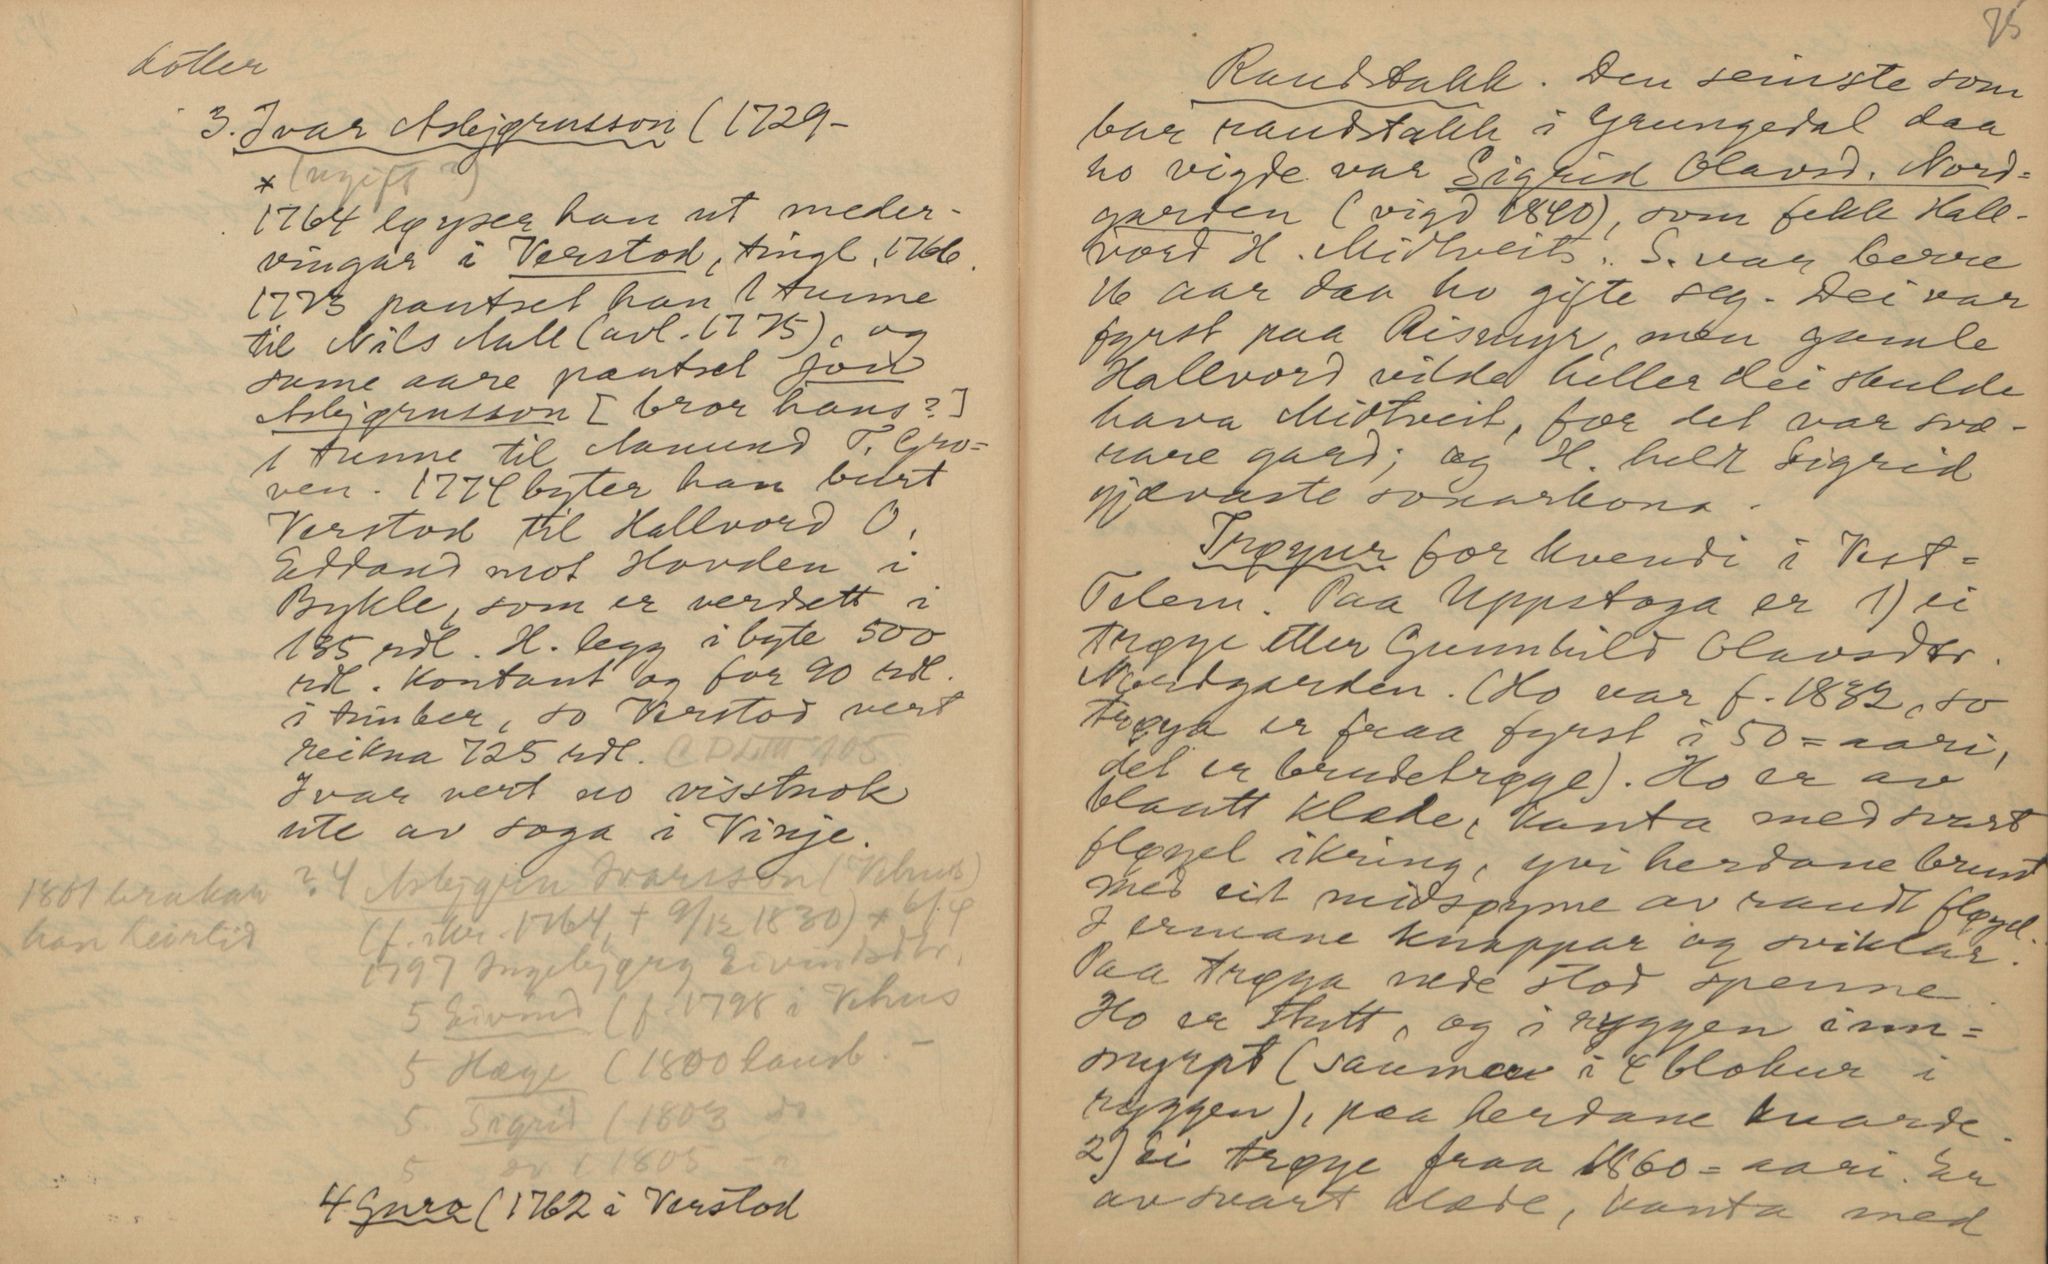 dotter
3. Ivar Asbjørnsson (1729-
* (ugift?)
1764 løyser han ut meder-
vingar i Verstod, tingl. 1766.
1773 pantset han 1 tunne
til Nils Aall (avl. 1775), og
same aare pantset Jon
Asbjørnsson [bror hans?]
1 tunne til Aamund T. Gro=
ven. 1774 byter han burt
Verstod til Hallvord O.
Eddand mot Hovden i
Bykle, som er verdsett i
135 rdl. H. legg i byte 500
rdl. kontant og for 90 rdl.
i timber, so Verstod vert
reikna 725 rdl.
Ivar vert no visstnok
ute av soga i Vinje.
1801 brukar
han Leirlid
? 4 Asbjørn Ivarsson (Vehus)
(f. ikr. 1764, † 9/12 1830) * 6/4
1797 Ingebjørg Eivindsdtr.
5 Eivind (f. 1798 i Vehus
5 Hæge (1800 sameb. -
5 Sigrid (1803 do
5 1805
4 Guro (1762 i Verstod
75
Raudstakk. Den seinste som
bar raudstakk i Grungedal daa
ho vigde var Sigrid Olavsd. Nord=
garden (vigd 1840), som fekk Hall-
vord H. Midtveit. S. var berre
16 aar daa ho gifte seg. Dei var
fyrst paa Rismyr, men gamle
Hallvord vilde heller dei skulde
hava Midtveit, for det var svæ-
rare gard; og H. heldt Sigrid
gjævaste sonarkona.
Trøyur for kvendi i Vest=
Telem. Paa Uppstoga er 1) ei
trøye etter Gunnhild Olavsdtr.
Nordgarden. (Ho var f. 1832, so
trøya er fraa fyrst i 50=aari,
det er brudetrøye). Ho er av
blautt klæde, kanta med svart
fløyel ikring, yvi herdane brunt
med eit midsøyme av raudt fløyel.
I ermane knappar og sviklar.
Paa trøya nede stod spenne.
Ho er stutt, og i ryggen inn=
snyrpt (saumar i 4 blokur i
ryggen), paa herdane kvarde.
2) Ei trøye fraa 1860=aari. Er
av svart klæde, kanta med